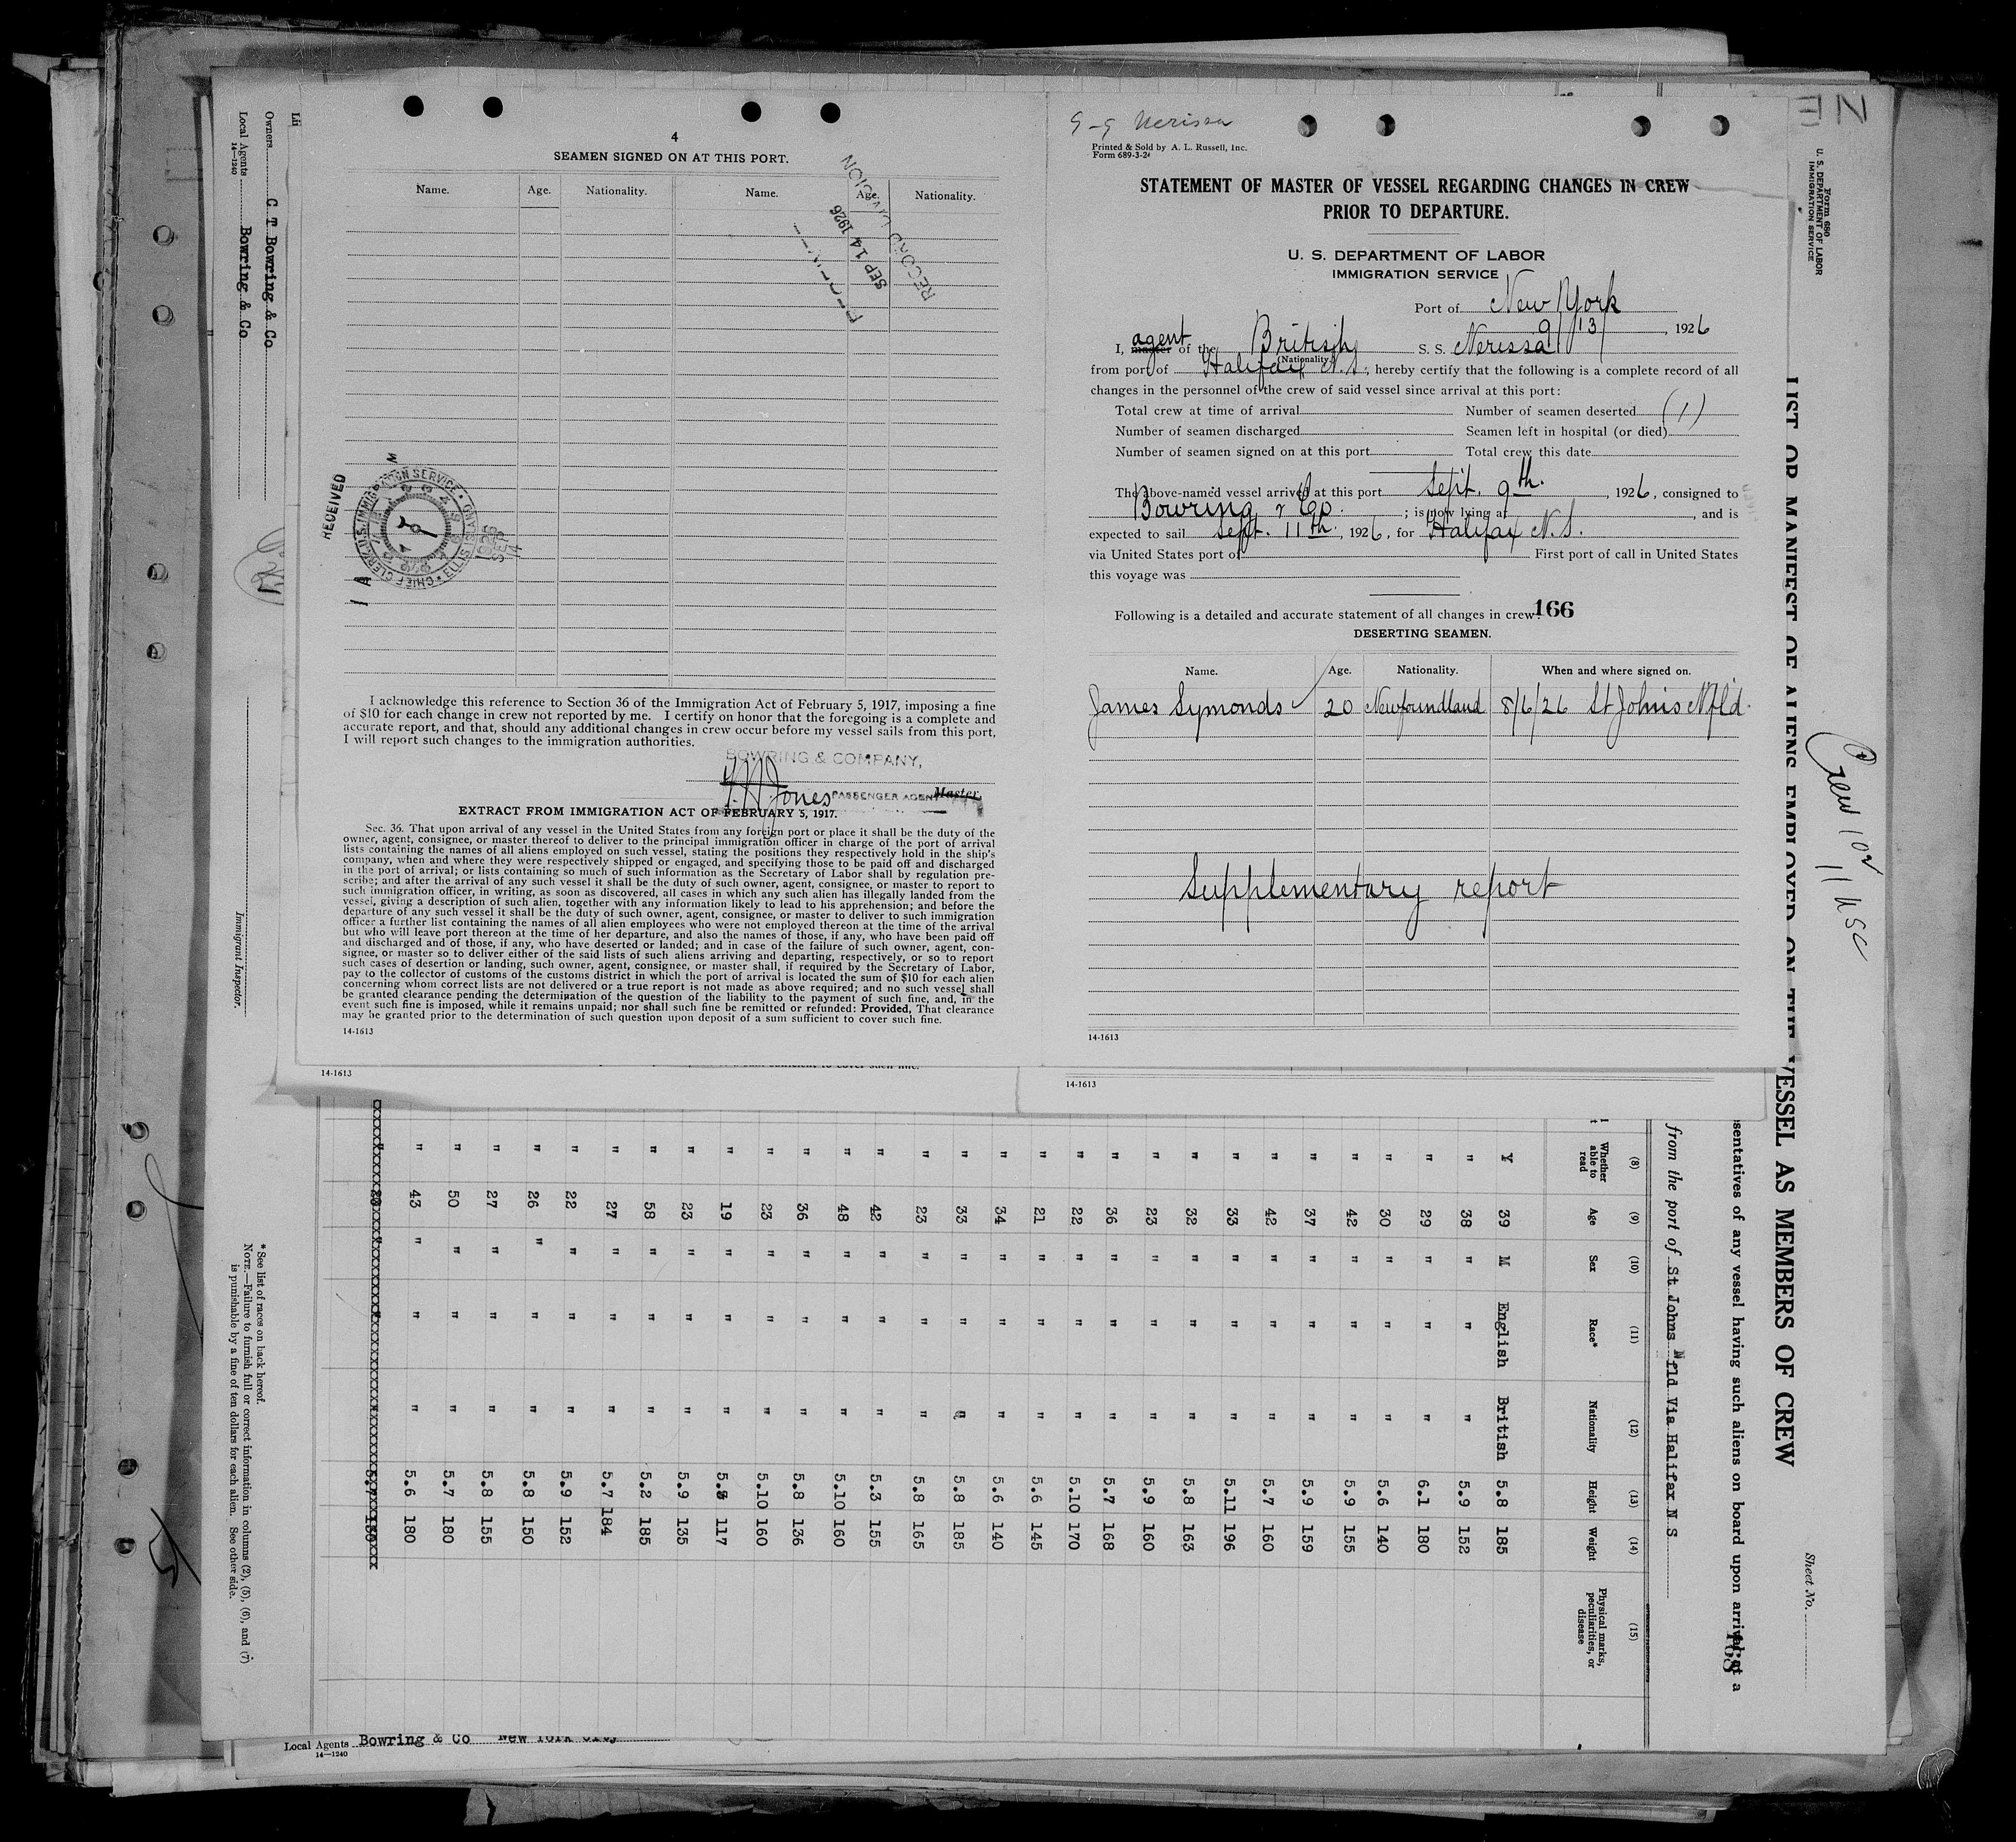 4
SEAMEN SIGNED ON AT THIS PORT.
Name. Age. Nationality. Name. Age. Nationality.
RECORD DIVISION
SEP 14 1926
RECEIVED
U.S. IMMIGRATION SERVICE • ELLIS ISLAND • CHIEF CLERK
1926
SEP
14
I acknowledge this reference to Section 36 of the Immigration Act of February 5, 1917, imposing a fine
of $10 for each change in crew not reported by me. I certify on honor that the foregoing is a complete and
accurate report, and that, should any additional changes in crew occur before my vessel sails from this port,
I will report such changes to the immigration authorities.
BOWRING & COMPANY,
Jones PASSENGER AGENT Master.
EXTRACT FROM IMMIGRATION ACT OF FEBRUARY 5, 1917.
Sec. 36. That upon arrival of any vessel in the United States from any foreign port or place it shall be the duty of the
owner, agent, consignee, or master thereof to deliver to the principal immigration officer in charge of the port of arrival
lists containing the names of all aliens employed on such vessel, stating the positions they respectively hold in the ship's
company, when and where they were respectively shipped or engaged, and specifying those to be paid off and discharged
in the port of arrival; or lists containing so much of such information as the Secretary of Labor shall by regulation pre-
scribe; and after the arrival of any such vessel it shall be the duty of such owner, agent, consignee, or master to report to
such immigration officer, in writing, as soon as discovered, all cases in which any such alien has illegally landed from the
vessel, giving a description of such alien, together with any information likely to lead to his apprehension; and before the
departure of any such vessel it shall be the duty of such owner, agent, consignee, or master to deliver to such immigration
officer a further list containing the names of all alien employees who were not employed thereon at the time of the arrival
but who will leave port thereon at the time of her departure, and also the names of those, if any, who have been paid off
and discharged and of those, if any, who have deserted or landed; and in case of the failure of such owner, agent, con-
signee, or master so to deliver either of the said lists of such aliens arriving and departing, respectively, or so to report
such cases of desertion or landing, such owner, agent, consignee, or master shall, if required by the Secretary of Labor,
pay to the collector of customs of the customs district in which the port of arrival is located the sum of $10 for each alien
concerning whom correct lists are not delivered or a true report is not made as above required; and no such vessel shall
be granted clearance pending the determination of the question of the liability to the payment of such fine, and, in the
event such fine is imposed, while it remains unpaid; nor shall such fine be remitted or refunded: Provided, That clearance
may be granted prior to the determination of such question upon deposit of a sum sufficient to cover such fine.
14-1613
14-1613
Nerissa
Printed & Sold by A. L. Russell, Inc.
Form 689-3-24
STATEMENT OF MASTER OF VESSEL REGARDING CHANGES IN CREW
PRIOR TO DEPARTURE.
U. S. DEPARTMENT OF LABOR
IMMIGRATION SERVICE
Port of New York
9/13/, 1926
I, master agent of the British S. S. Nerissa
(Nationality)
from port of Halifax N.S., hereby certify that the following is a complete record of all
changes in the personnel of the crew of said vessel since arrival at this port:
Total crew at time of arrival Number of seamen deserted (1)
Number of seamen discharged Seamen left in hospital (or died)
Number of seamen signed on at this port Total crew this date
The above-named vessel arrived at this port Sept. 9th., 1926, consigned to
Bowring & Co.; is now lying at , and is
expected to sail Sept. 11th, 1926, for Halifax N.S.
via United States port of First port of call in United States
this voyage was
Following is a detailed and accurate statement of all changes in crew: 166
DESERTING SEAMEN.
Name. Age. Nationality. When and where signed on.
James Symonds 20 Newfoundland 8/6/26 St Johns Nfld.
Supplementary report
14-1613
14-1613
Form 680
U. S. DEPARTMENT OF LABOR
IMMIGRATION SERVICE
LIST OR MANIFEST OF ALIENS EMPLOYED ON THE VESSEL AS MEMBERS OF CREW
Sheet No.
Crew 102
11 USC
sentatives of any vessel having such aliens on board upon arrival at a
168
from the port of St Johns Nfld Via Halifax N S
(8) (9) (10) (11) (12) (13) (14) (15)
Whether able to read Age Sex Race* Nationality Height Weight Physical marks, peculiarities, or disease
Y 39 M English British 5.8 185
" 38 " " " 5.9 152
" 29 " " " 6.1 180
" 30 " " " 5.6 140
" 42 " " " 5.9 155
" 37 " " " 5.9 159
" 42 " " " 5.7 160
" 33 " " " 5.11 196
" 32 " " " 5.8 163
" 23 " " " 5.9 160
" 36 " " " 5.7 168
" 22 " " " 5.10 170
" 21 " " " 5.6 145
" 34 " " " 5.6 140
" 33 " " " 5.8 185
" 23 " " " 5.8 165
" 42 " " " 5.3 155
" 48 " " " 5.10 160
" 36 " " " 5.8 136
" 23 " " " 5.10 160
" 19 " " " 117
" 23 " " " 5.9 135
" 58 " " " 5.2 185
" 27 " " " 5.7 184
" 22 " " " 5.9 152
" 26 " " " 5.8 150
" 27 " " " 5.8 155
" 50 " " " 5.7 180
" 43 " " " 5.6 180
Owners C T Bowring & Co
Local Agents Bowring & Co
14—1240
Immigrant Inspector.
* See list of races on back hereof.
NOTE.—Failure to furnish full or correct information in columns (2), (5), (6), and (7)
is punishable by a fine of ten dollars for each alien. See other side.
Local Agents Bowring & Co New York City
14—1240